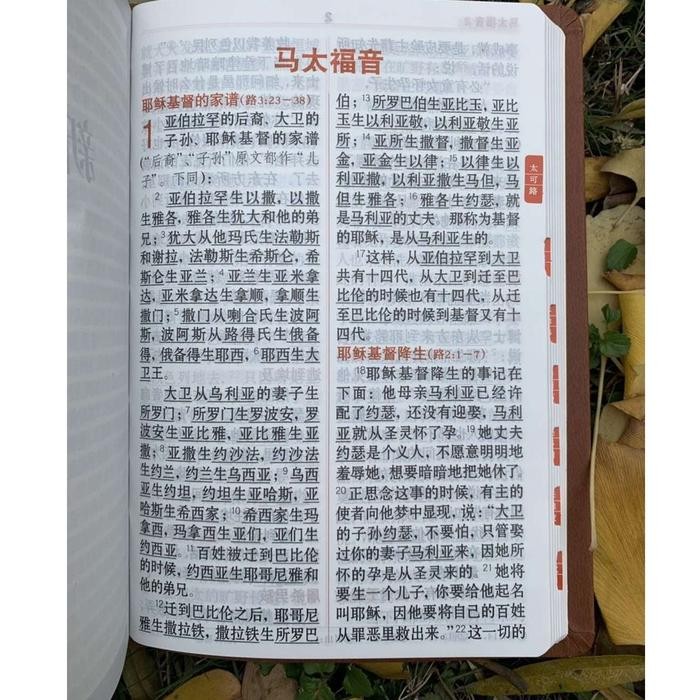 2
马太福音
耶稣基督的家谱(路3:23－38)
1 亚伯拉罕的后裔、大卫的
子孙、耶稣基督的家谱
("后裔"、"子孙"原文都作"儿
子"。下同):
2 亚伯拉罕生以撒,以撒
生雅各,雅各生犹大和他的弟
兄;3 犹大从他玛氏生法勒斯
和谢拉,法勒斯生希斯仑,希
斯仑生亚兰;4 亚兰生亚米拿
达,亚米拿达生拿顺,拿顺生
撒门;5 撒门从喇合氏生波阿
斯,波阿斯从路得氏生俄备
得,俄备得生耶西,6 耶西生大
卫王。
大卫从乌利亚的妻子生
所罗门;7 所罗门生罗波安,罗
波安生亚比雅,亚比雅生亚
撒;8 亚撒生约沙法,约沙法
生约兰,约兰生乌西亚;9 乌西
亚生约坦,约坦生亚哈斯,亚
哈斯生希西家;10 希西家生玛
拿西,玛拿西生亚们,亚们生
约西亚。11 百姓被迁到巴比伦
的时候,约西亚生耶哥尼雅和
他的弟兄。
12 迁到巴比伦之后,耶哥尼
雅生撒拉铁,撒拉铁生所罗巴
伯;13 所罗巴伯生亚比玉,亚比
玉生以利亚敬,以利亚敬生亚
所;14 亚所生撒督,撒督生亚
金,亚金生以律;15 以律生以
利亚撒,以利亚撒生马但,马
但生雅各;16 雅各生约瑟,就
是马利亚的丈夫。那称为基督
的耶稣,是从马利亚生的。
17 这样,从亚伯拉罕到大卫
共有十四代,从大卫到迁至巴
比伦的时候也有十四代,从迁
至巴比伦的时候到基督又有十
四代。
耶稣基督降生(路2:1－7)
18 耶稣基督降生的事记在
下面:他母亲马利亚已经许
配了约瑟,还没有迎娶,马利
亚就从圣灵怀了孕。19 她丈夫
约瑟是个义人,不愿意明明地
羞辱她,想要暗暗地把她休了。
20 正思念这事的时候,有主的
使者向他梦中显现,说:"大卫
的子孙约瑟,不要怕,只管娶
过你的妻子马利亚来,因她所
怀的孕是从圣灵来的。21 她将
要生一个儿子,你要给他起名
叫耶稣,因他要将自己的百姓
从罪恶里救出来。"22 这一切的
太可路